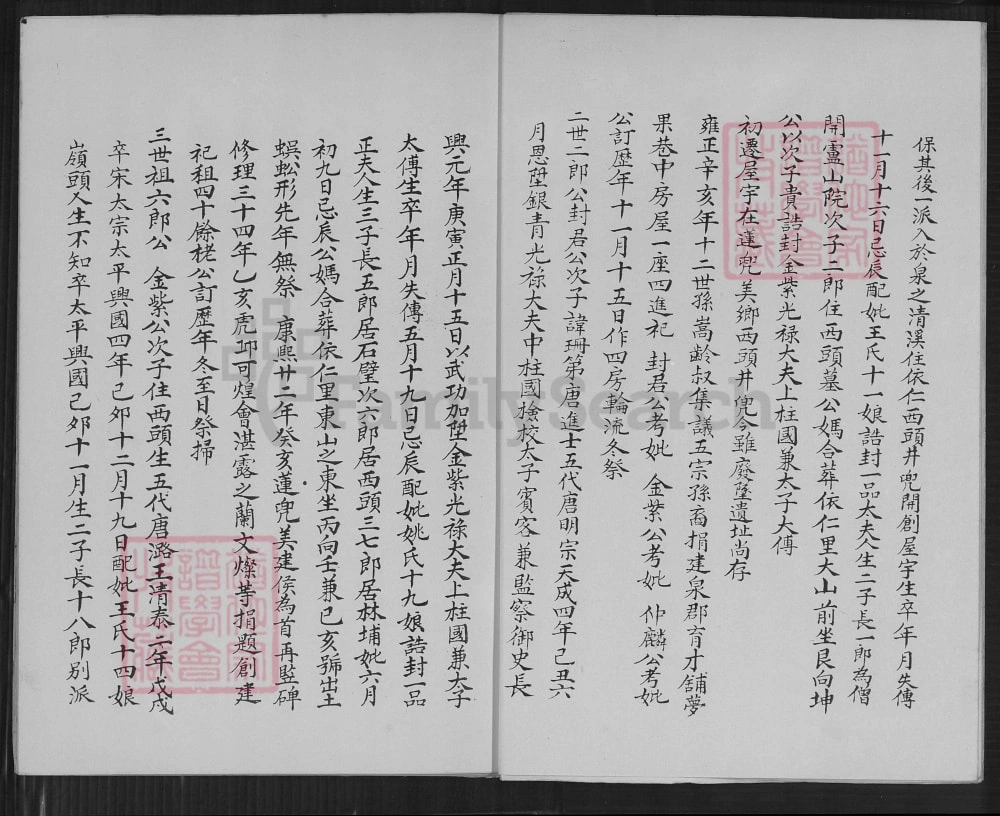 保其後一派入於泉之清溪住依仁西頭井兜開創屋宇生卒年月失傳
十一月十六日忌辰配妣王氏十一娘誥封一品太夫人生二子長一郎為僧
開廬山院次子二郎住西頭墓公媽合葬依仁里大山前坐艮向坤
公以次子貴誥封金紫光祿大夫上柱國兼太子大傅
初遷屋宇在蓮兜美鄉西頭井兜今雖廢墜遺址尚存
雍正辛亥年十二世孫嵩齡叔集議五宗孫裔捐建泉郡育才舖夢
果巷中房屋一座四進祀 封君公考妣 金紫公考妣 仲麟公考妣
公訂歷年十一月十五日作四房輪流冬祭
二世二郎公封君公次子諱珊第唐進士五代唐明宗天成四年己丑六
月恩陞銀青光祿大夫中柱國撿校太子賓客兼監察御史長
興元年庚寅正月十五日以武功加陞金紫光祿大夫上柱國兼太子
太傅生卒年月失傳五月十九日忌辰配妣姚氏十九娘誥封一品
正夫人生三子長五郎居石壁次六郎居西頭三七郎居林埔妣六月
初九日忌辰公媽合葬依仁里東山之東坐丙向壬兼巳亥號出土
蜈蚣形先年無祭 康熙廿二年癸亥蓮兜美建侯為首再竪碑
修理三十四年乙亥虎邱可煌會湛露之蘭文燦等捐題創建
祀租四十餘栳公訂歷年冬至日祭掃
三世祖六郎公 金紫公次子住西頭生五代唐潞王清泰二年戊戌
卒宋太宗太平興國四年己夘十二月十九日配妣王氏十四娘
嶺頭人生不知卒太平興國己夘十一月生二子長十八郎別派
FamilySearch